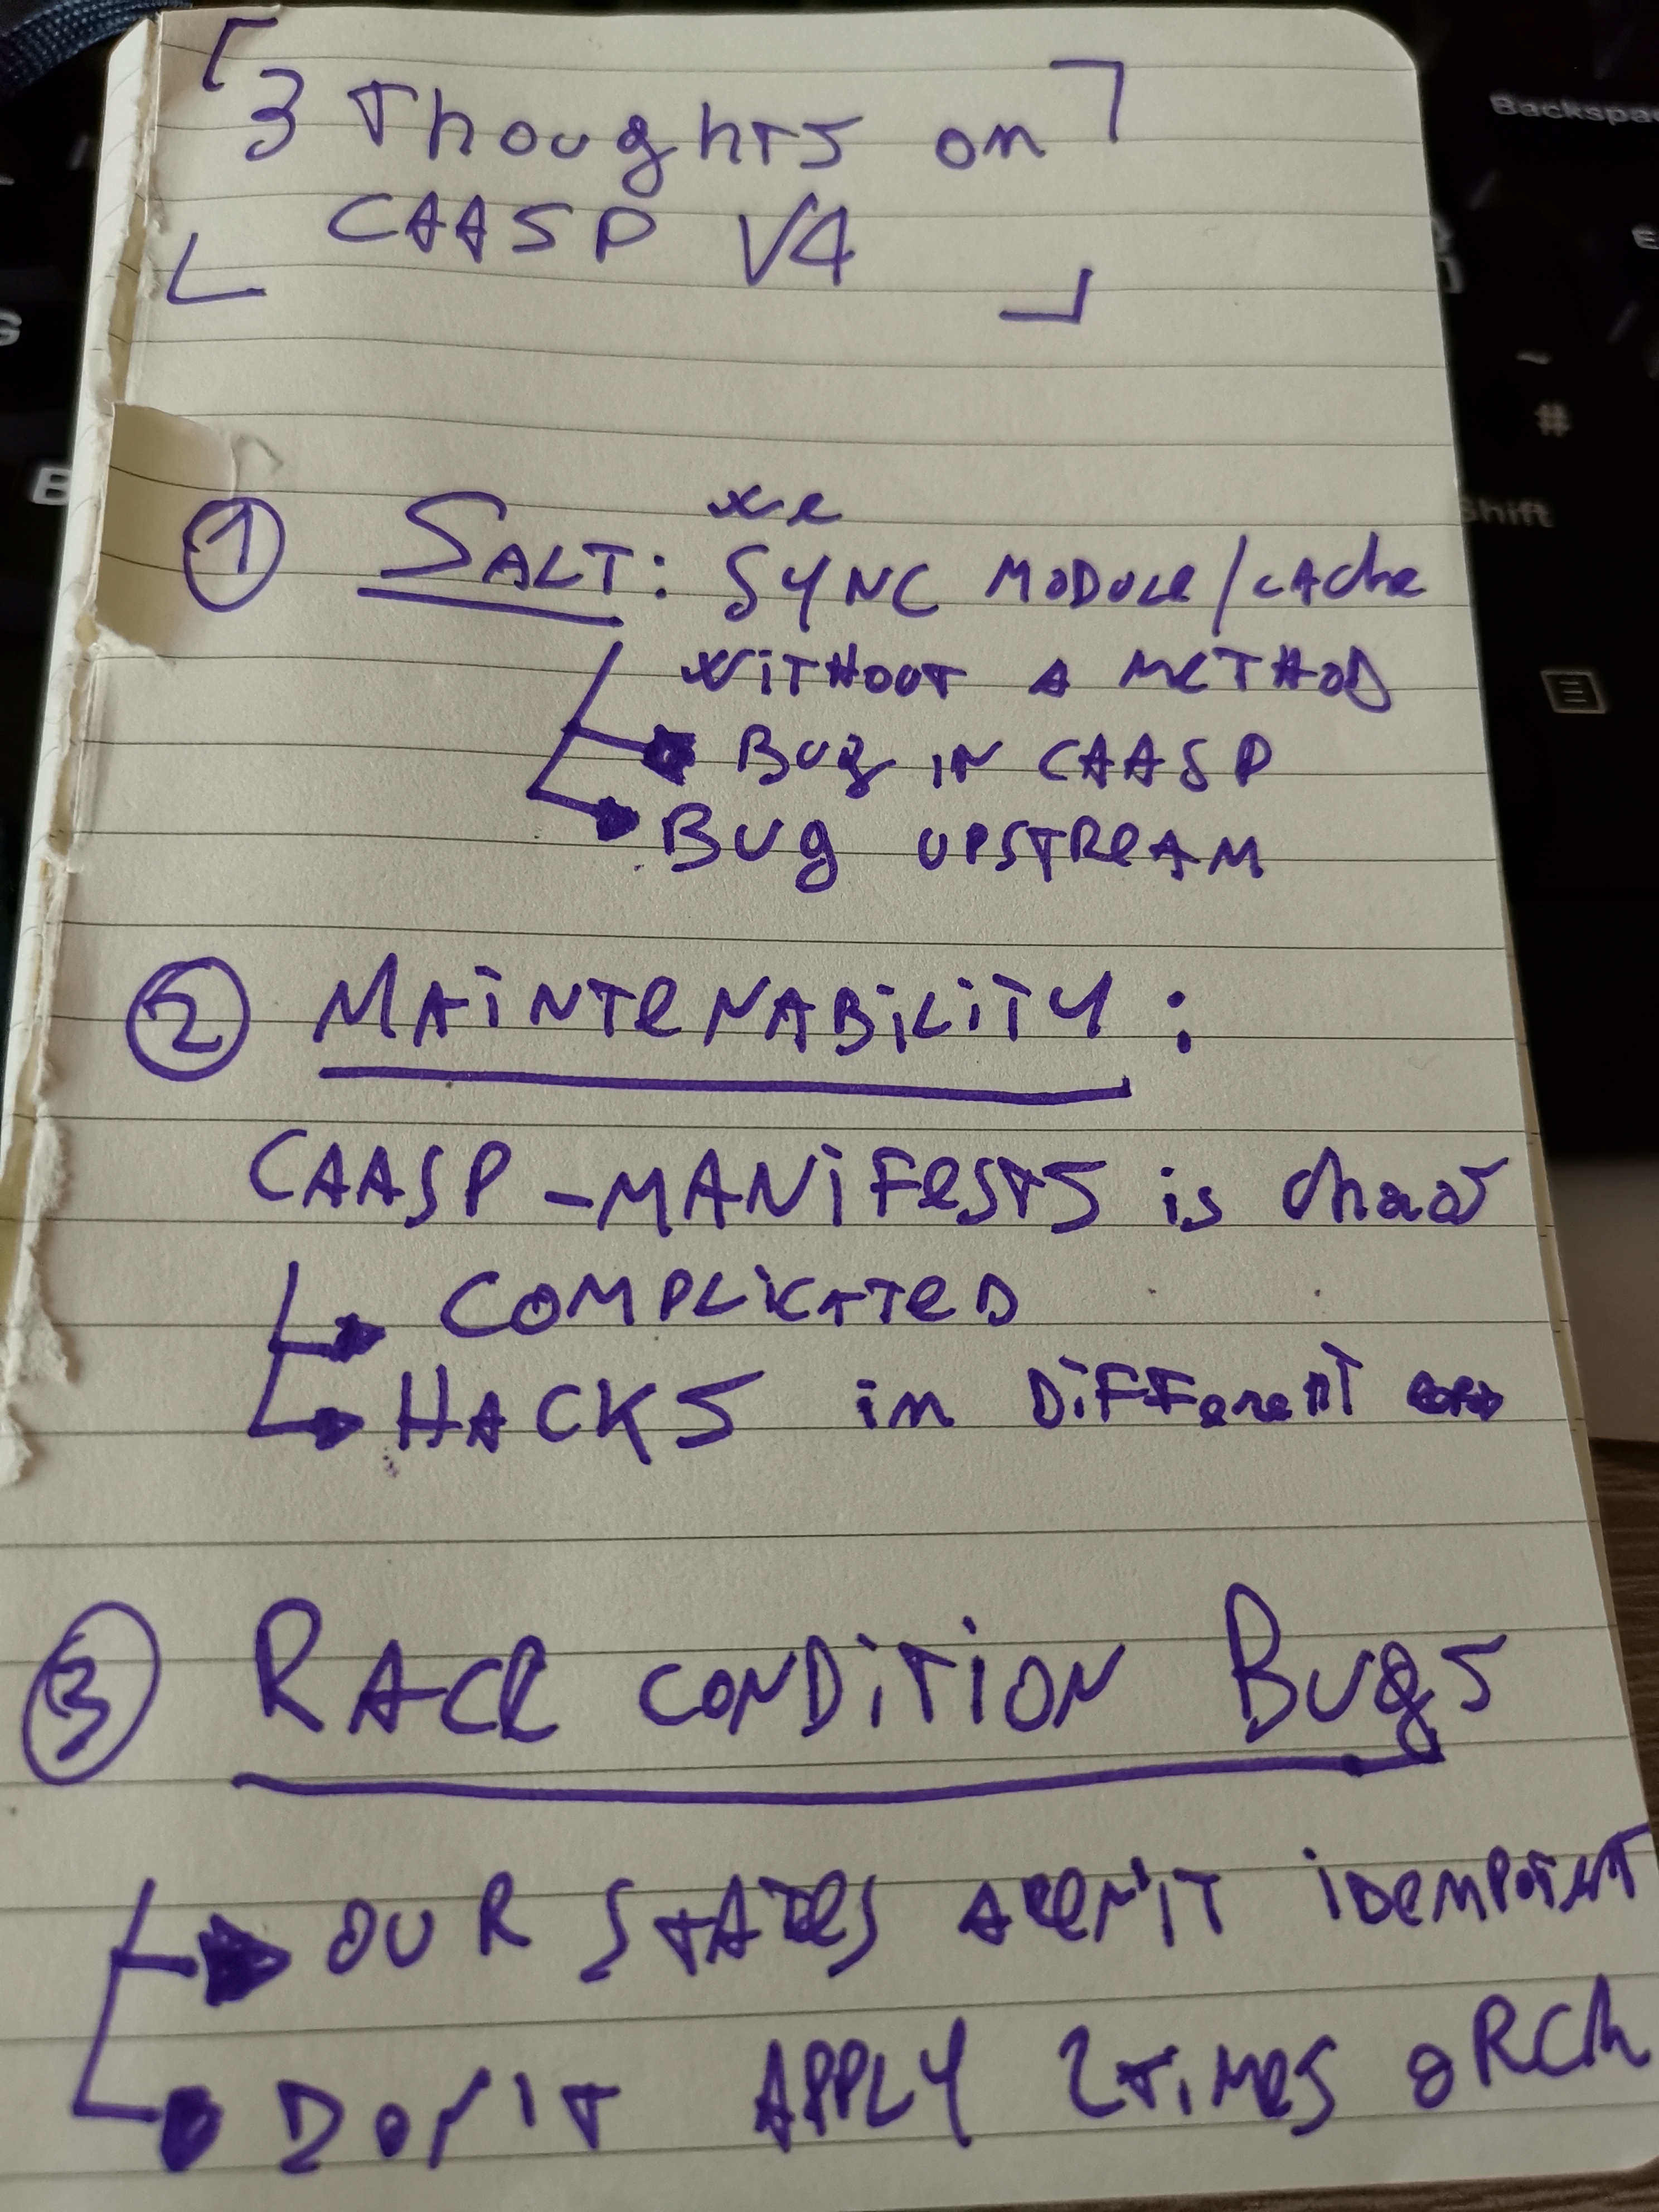 3 Thoughts on
CAASP V4
1 SALT: we
SYNC MODULE/CACHE
WITHOUT A METHOD
BUG IN CAASP
BUG UPSTREAM
2 MAINTENABILITY:
CAASP-MANIFESTS is chaos
COMPLICATED
HACKS in DIFFERENT
3 RACE CONDITION BUGS
OUR STATES AREN'T IDEMPOTENT
DON'T APPLY 2 TIMES ORCH
Backspa
Shift
~
#